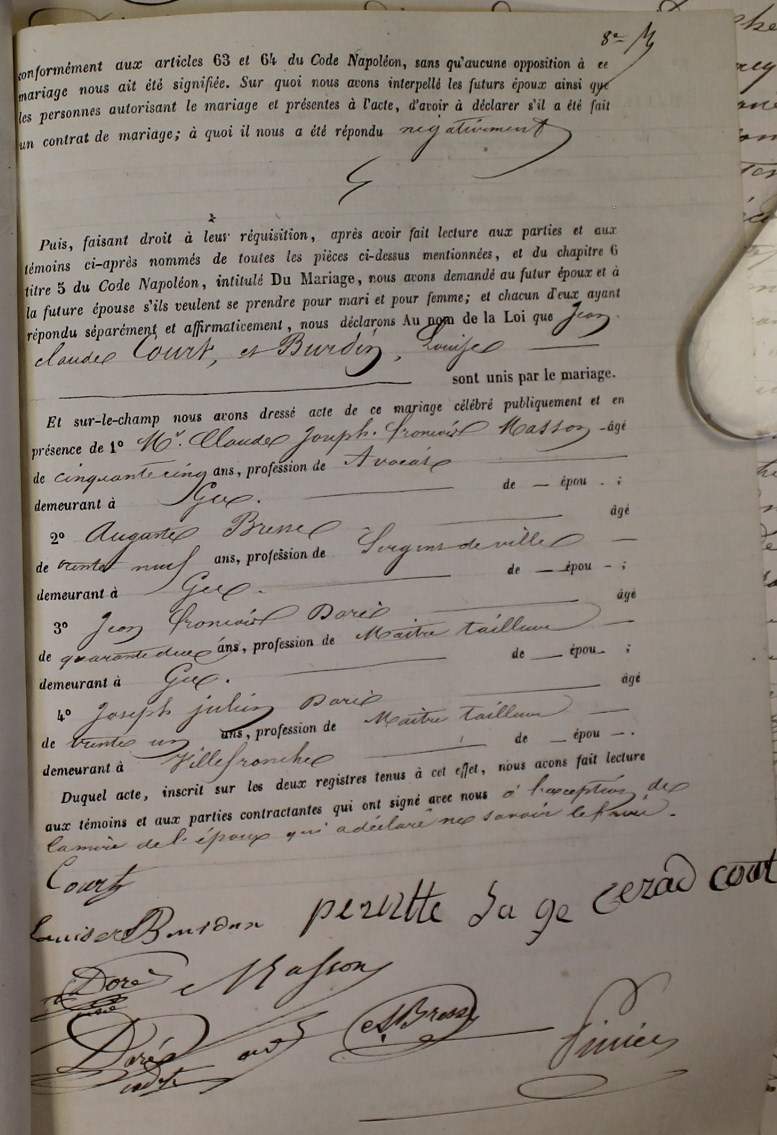 8e
conformément aux articles 63 et 64 du Code Napoléon, sans qu'aucune opposition à ce
mariage nous ait été signifiée. Sur quoi nous avons interpellé les futurs époux ainsi que
les personnes autorisant le mariage et présentes à l'acte, d'avoir à déclarer s'il a été fait
un contrat de mariage; à quoi il nous a été répondu négativement
Puis, faisant droit à leur réquisition, après avoir fait lecture aux parties et aux
témoins ci-après nommés de toutes les pièces ci-dessus mentionnées, et du chapitre 6
titre 5 du Code Napoléon, intitulé Du Mariage, nous avons demandé au futur époux et à
la future épouse s'ils veulent se prendre pour mari et pour femme; et chacun d'eux ayant
répondu séparément et affirmativement, nous déclarons Au nom de la Loi que Jean
claude Court, et Burdin, Louise
sont unis par le mariage.
Et sur-le-champ nous avons dressé acte de ce mariage célébré publiquement et en
présence de 1º Mr. Claude Joseph François Masson - âgé
de cinquante cinq ans, profession de Avocat
demeurant à Gex. de — épou - ;
2º Auguste Bresse âgé
de trente neuf ans, profession de Sergent de ville
demeurant à Gex. de — épou - ;
3º Jean François Doré âgé
de quarante deux ans, profession de Maître tailleur
demeurant à Gex. de — épou - ;
4º Joseph julien Doré âgé
de trente un ans, profession de Maître tailleur
demeurant à Villefranche de — épou - .
Duquel acte, inscrit sur les deux registres tenus à cet effet, nous avons fait lecture
aux témoins et aux parties contractantes qui ont signé avec nous à l'exception de
la mère de l'époux qui a déclaré ne savoir le faire.
Court
Louise Burdin pernette court
Doré Masson
Doré A. Bresse